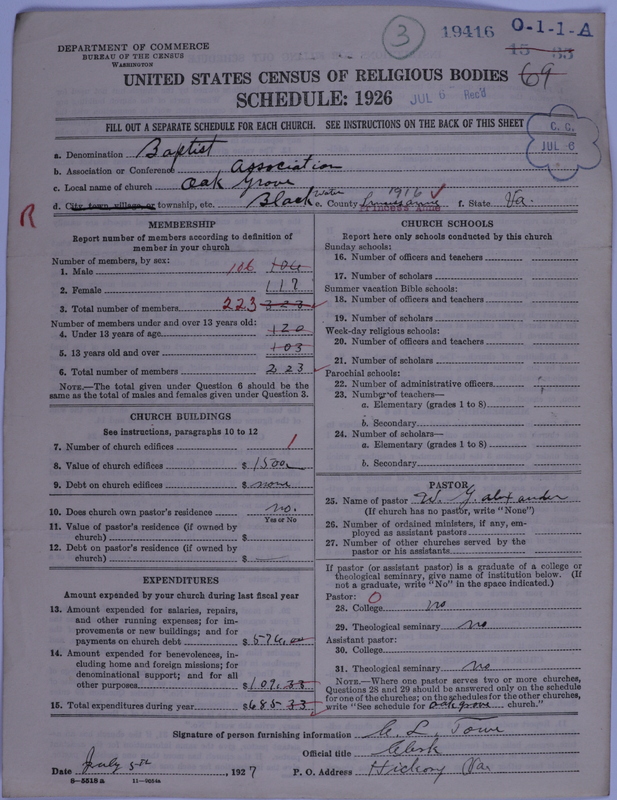 3 19416 O-1-1-A
15-33
DEPARTMENT OF COMMERCE
BUREAU OF THE CENSUS
WASHINGTON
UNITED STATES CENSUS OF RELIGIOUS BODIES 69
SCHEDULE: 1926 JUL 6 Rec'd
FILL OUT A SEPARATE SCHEDULE FOR EACH CHURCH. SEE INSTRUCTIONS ON THE BACK OF THIS SHEET
C. C. JUL 6
a. Denomination Baptist
b. Association or Conference Association
c. Local name of church Oak Grove
d. City, town, village, or township, etc. Black Water e. County Princess Anne 1916 f. State Va.
R
MEMBERSHIP
Report number of members according to definition of
member in your church
Number of members, by sex:
1. Male 106 106
2. Female 117
3. Total number of members 223 323
Number of members under and over 13 years old:
4. Under 13 years of age 120
5. 13 years old and over 103
6. Total number of members 223
NOTE.—The total given under Question 6 should be the
same as the total of males and females given under Question 3.
CHURCH BUILDINGS
See instructions, paragraphs 10 to 12
7. Number of church edifices 1
8. Value of church edifices $ 1500
9. Debt on church edifices $ none
10. Does church own pastor's residence no.
Yes or No
11. Value of pastor's residence (if owned by
church) $
12. Debt on pastor's residence (if owned by
church) $
EXPENDITURES
Amount expended by your church during last fiscal year
13. Amount expended for salaries, repairs,
and other running expenses; for im-
provements or new buildings; and for
payments on church debt $ 576.00
14. Amount expended for benevolences, in-
cluding home and foreign missions; for
denominational support; and for all
other purposes $ 109.33
15. Total expenditures during year $ 685 33
CHURCH SCHOOLS
Report here only schools conducted by this church
Sunday schools:
16. Number of officers and teachers
17. Number of scholars
Summer vacation Bible schools:
18. Number of officers and teachers
19. Number of scholars
Week-day religious schools:
20. Number of officers and teachers
21. Number of scholars
Parochial schools:
22. Number of administrative officers
23. Number of teachers—
a. Elementary (grades 1 to 8)
b. Secondary
24. Number of scholars—
a. Elementary (grades 1 to 8)
b. Secondary
PASTOR
25. Name of pastor W. G. alexander
(If church has no pastor, write "None")
26. Number of ordained ministers, if any, em-
ployed as assistant pastors
27. Number of other churches served by the
pastor or his assistants
If pastor (or assistant pastor) is a graduate of a college or
theological seminary, give name of institution below. (If
not a graduate, write "No" in the space indicated.)
Pastor: O
28. College no
29. Theological seminary no
Assistant pastor:
30. College
31. Theological seminary no
NOTE.—Where one pastor serves two or more churches,
Questions 28 and 29 should be answered only on the schedule
for one of the churches; on the schedules for the other churches,
write "See schedule for oak grove church."
Signature of person furnishing information C. L. Towe
Official title Clerk
Date July 5th, 1927 P. O. Address Hickory Va
8-5518 a 11-9654a